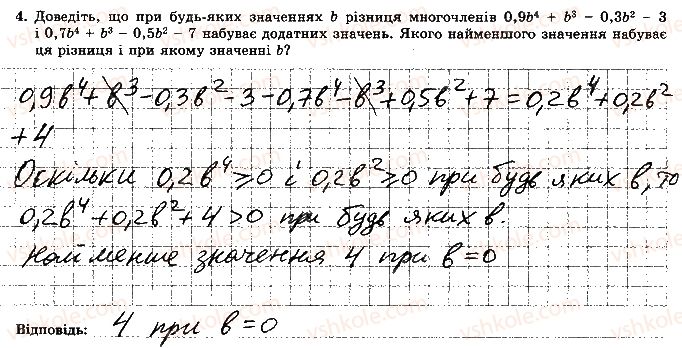 4. Доведіть, що при будь-яких значеннях b різниця многочленів 0,9b⁴ + b³ − 0,3b² − 3
і 0,7b⁴ + b³ − 0,5b² − 7 набуває додатних значень. Якого найменшого значення набуває
ця різниця і при якому значенні b?
0,9b⁴ + b³ − 0,3b² − 3 − 0,7b⁴ − b³ + 0,5b² + 7 = 0,2b⁴ + 0,2b²
+ 4
Оскільки 0,2b⁴ ≥ 0 і 0,2b² ≥ 0 при будь яких b, то
0,2b⁴ + 0,2b² + 4 > 0 при будь яких b.
Найменше значення 4 при b = 0
Відповідь: 4 при b = 0
vshkole.com